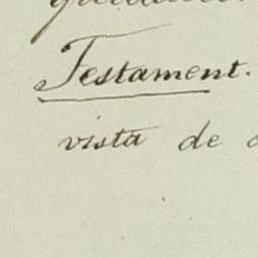 Testament.
vista de